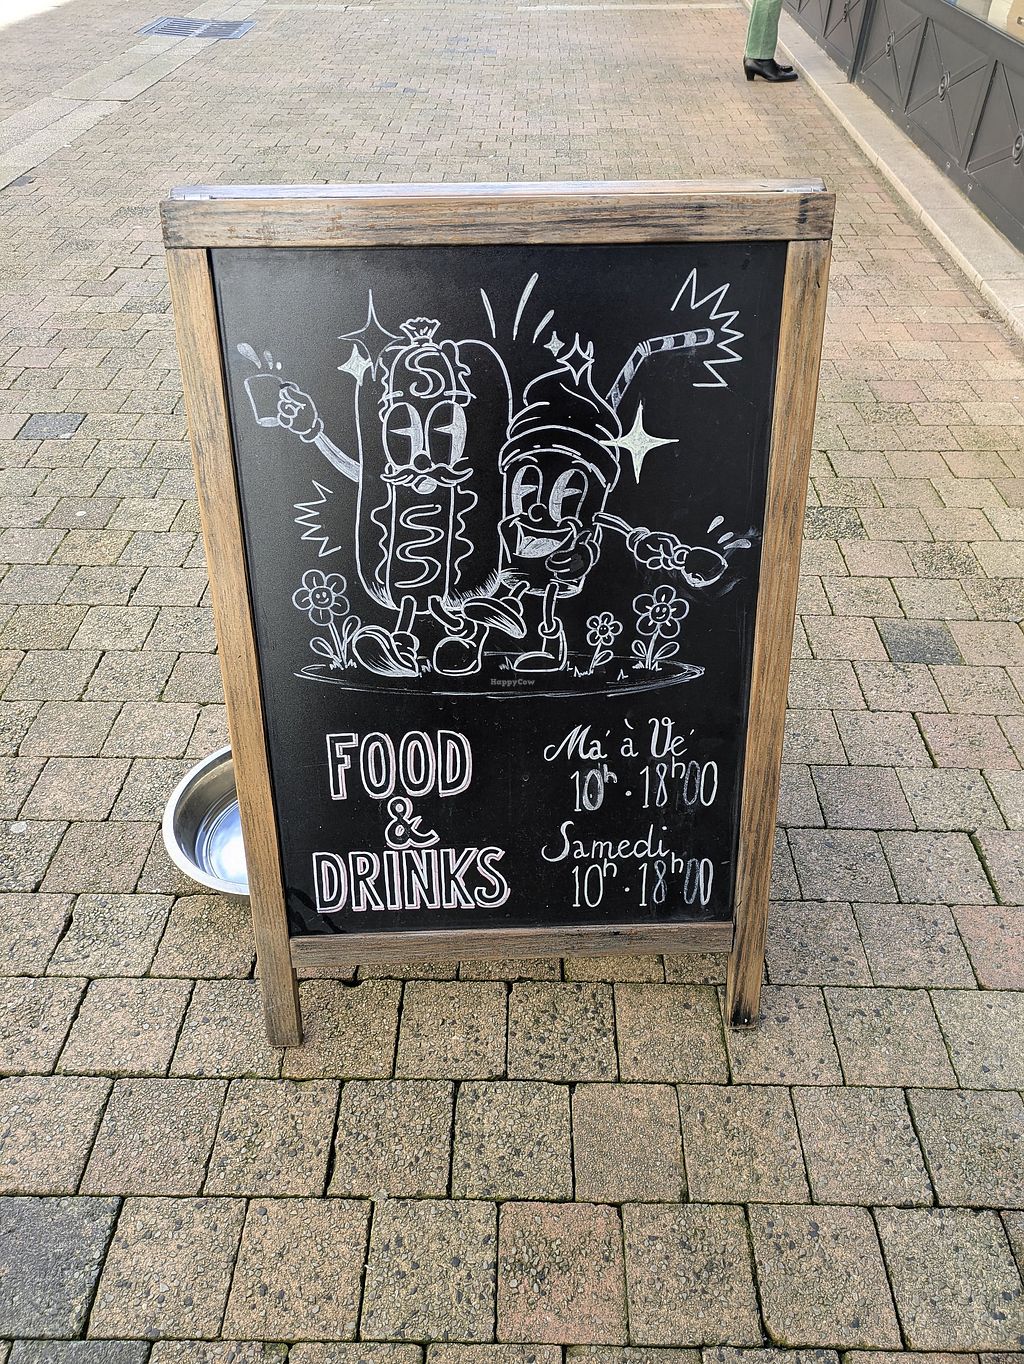 SF
HappyCow
FOOD
&
DRINKS
Ma' à Ve'
10h · 18h00
Samedi
10h · 18h00